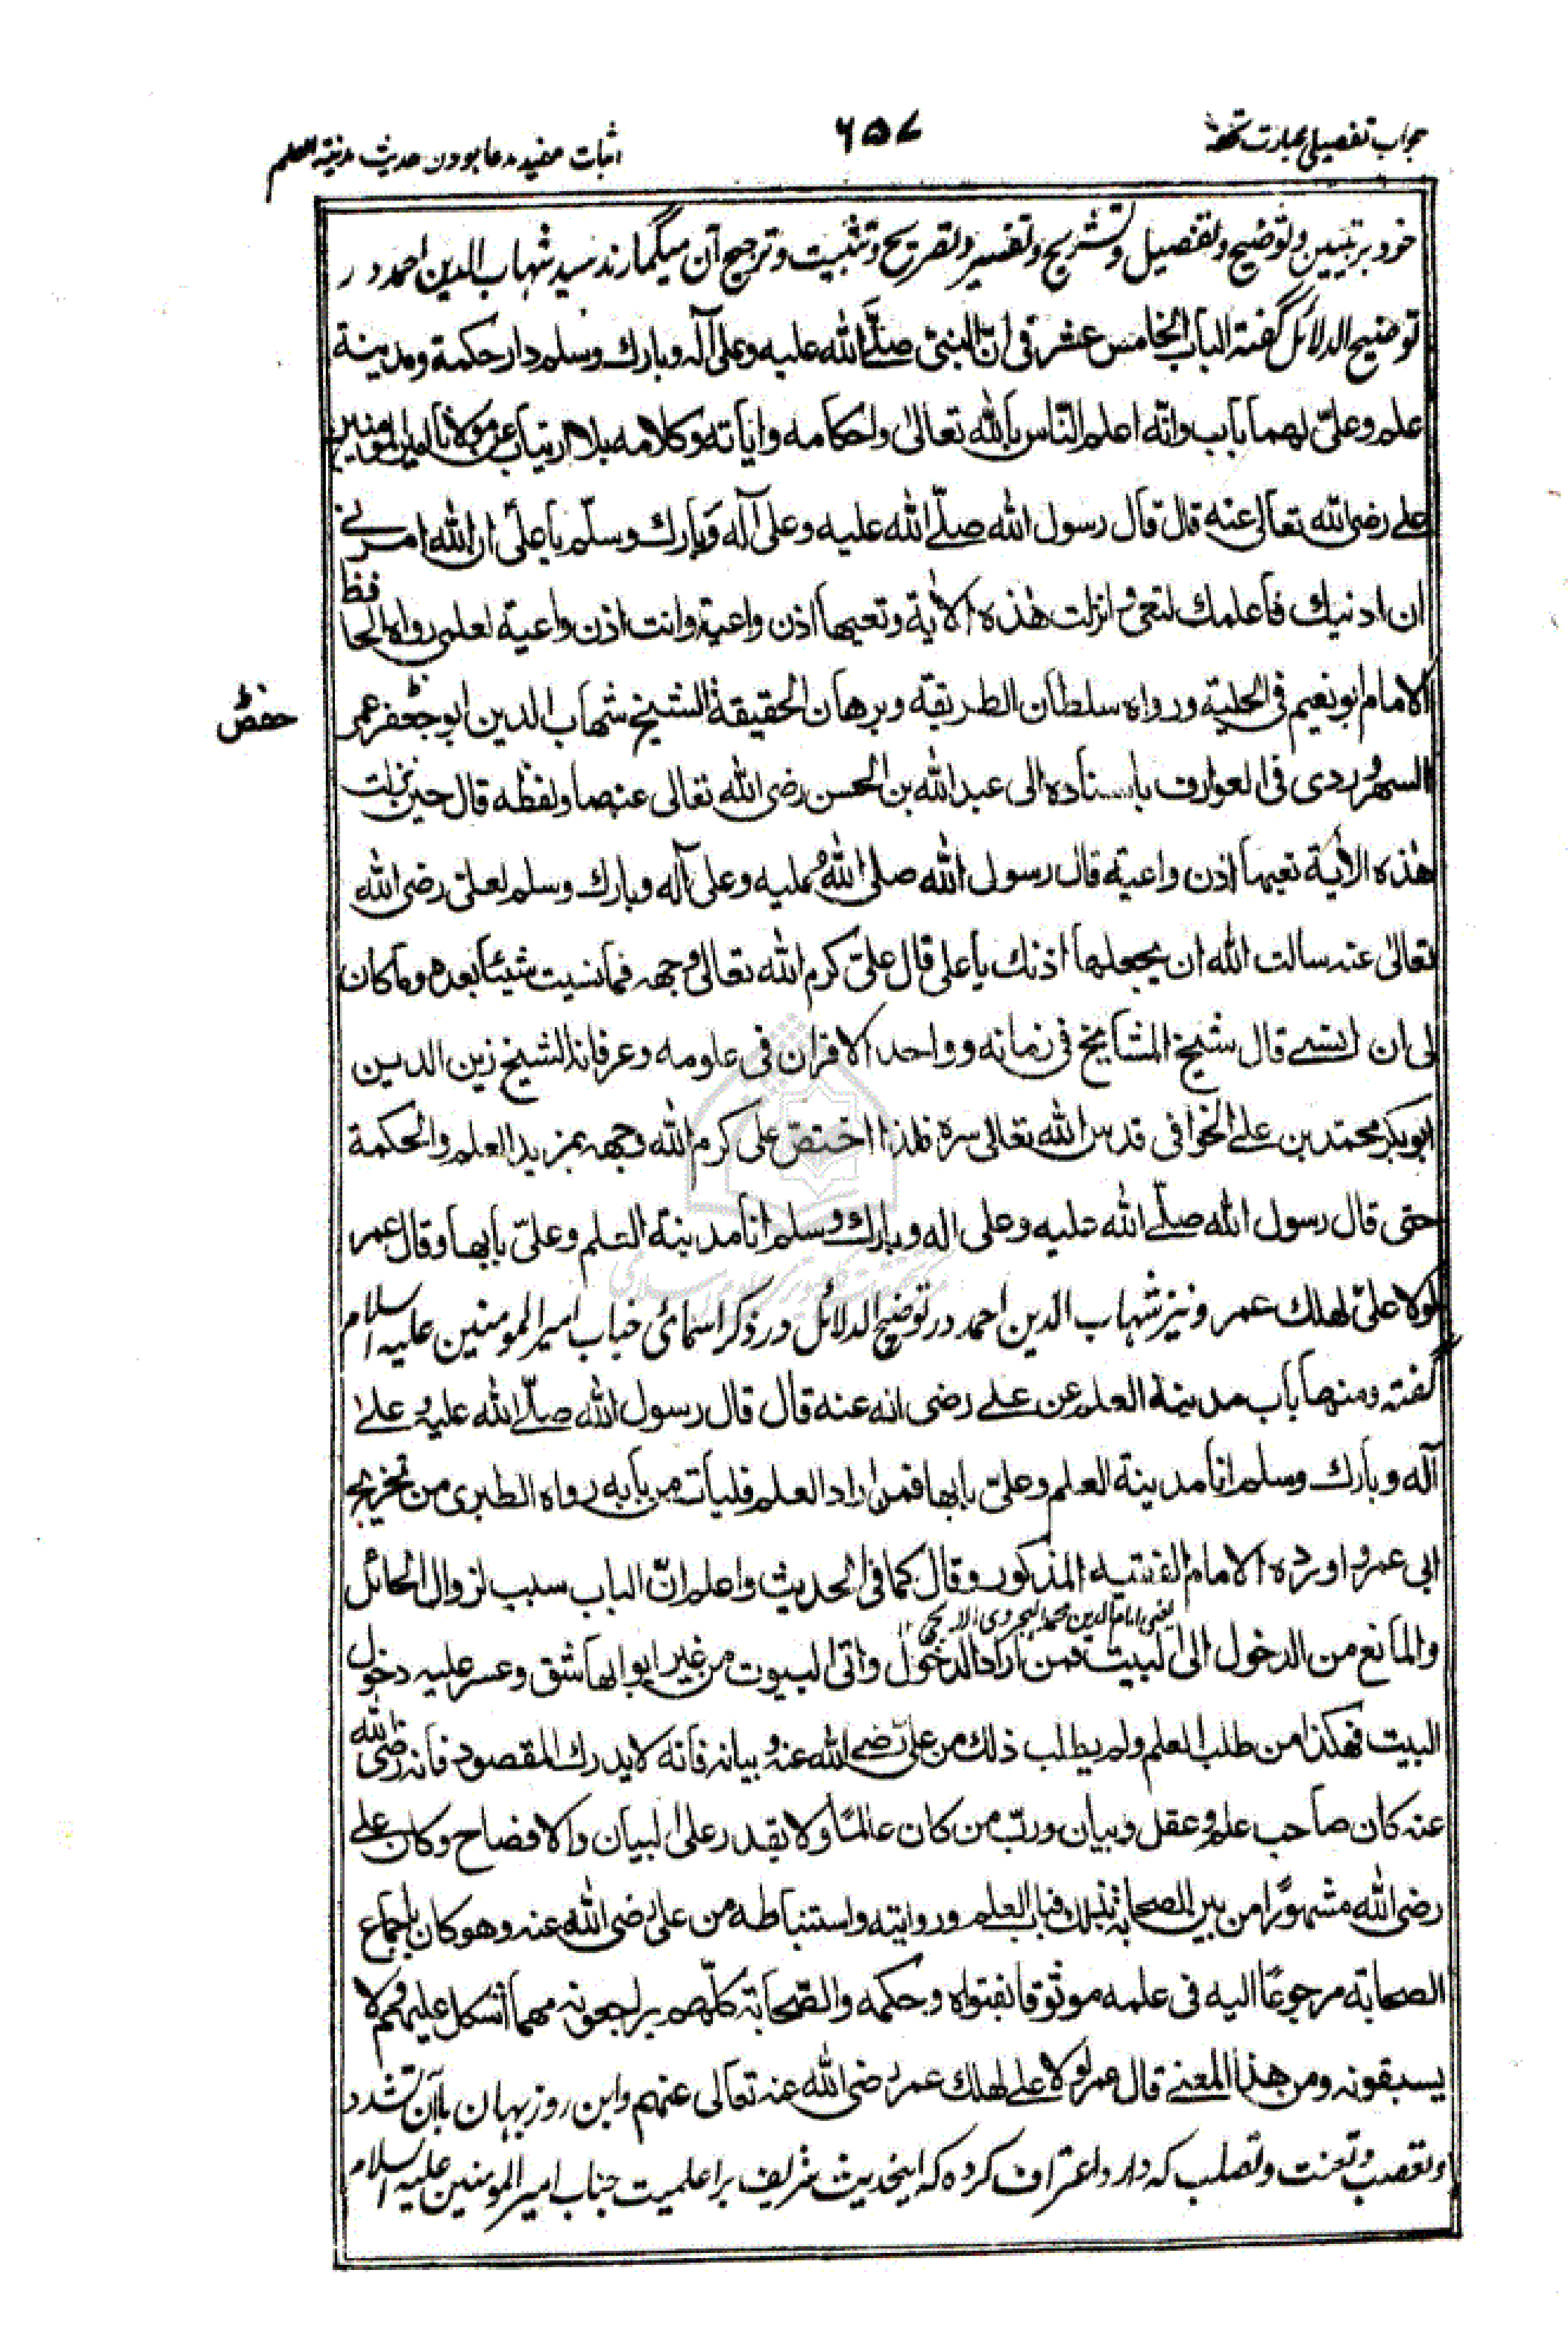 جواب تفصیلی عبارت تحفه
۶۵۷
اثبات مفید مدعا بودن حدیث مدینة العلم
خود بر تبیین و توضیح و تفصیل و تشریح و تفسیر و تصریح و تثبیت و ترجیح آن میگمارند سید شهاب الدین احمد در
توضیح الدلائل گفته الباب الخامس عشر فی انّ النبیّ صلّی الله علیه وعلی آله وبارك وسلم دار حکمة ومدینة
علم وعلیّ لهما باب وانّه اعلم النّاس بالله تعالیٰ واحکامه وایاته وکلامه بلا ارتیاب عن مولانا امیر المؤمنین
علی رضی الله تعالی عنه قال قال رسول الله صلّی الله علیه وعلی آله وَبارك وسلّم یا علیّ ان الله امرنی
ان ادنیك فاعلمك لتعی وانزلت هٰذه الاٰیة وتعیها اذن واعیة وانت اذن واعیة لعلمی رواه الحافظ
الامام ابو نعیم فی الحلیة ورواه سلطان الطریقة وبرهان الحقیقة الشیخ شهاب الدین ابو جعفر عمر
حفص
السهروردی فی العوارف باسناده الی عبد الله بن الحسن رضی الله تعالی عنهما ولفظه قال حین نزلت
هٰذه الاٰیة تعیها اذن واعیة قال رسول الله صلی الله علیه وعلی آله وبارك وسلم لعلیّ رضی الله
تعالیٰ عنه سالت الله ان یجعلها اذنك یا علی قال علیّ کرم الله تعالیٰ وجهه فما نسیت شیئاً بعده وما کان
لی ان انسی قال شیخ المشایخ فی زمانه وواحد الاقران فی علومه وعرفانه الشیخ زین الدین
ابو بکر محمّد بن علی الخوافی قدس الله تعالی سره فلذا اختصّ علی کرم الله وجهه بمزید العلم والحکمة
حتی قال رسول الله صلّی الله علیه وعلی اله وبارك وسلم انا مدینة العلم وعلیّ بابها وقال عمر
لولا علیّ لهلك عمر و نیز شهاب الدین احمد در توضیح الدلائل در ذکر اسمائ جناب امیر المومنین علیه السلام
گفته ومنها باب مدینة العلم عن علی رضی انه عنه قال قال رسول الله صلّی الله علیه وعلیٰ
آله وبارك وسلم انا مدینة العلم وعلیّ بابها فمن اراد العلم فلیات من بابه رواه الطبری من تخریج
ابی عمر واورده الامام الفقیه المذکور وقال کما فی الحدیث واعلم انّ الباب سبب لزوال الحائل
یعنی امام الدین محمد الایجی
والمانع من الدخول الی البیت فمن اراد الدخول واتی البیوت من غیر ابوابها شق وعسر علیه دخول
البیت فهکذا من طلب العلم ولم یطلب ذلك من علیّ رضی الله عنه وبیانه فانه لا یدرك المقصود فانه رضی الله
عنه کان صاحب علم وعقل وبیان وربّ من کان عالماً ولا یقدر علی البیان والافصاح وکان علی
رضی الله مشهورًا من بین الصحابة بذلك فباب العلم وروایته واستنباطه من علی رضی الله عنه وهو کان باجماع
الصحابة مرجوعًا الیه فی علمه موثوقا بفتواه وحکمه والصّحابة کلّهم یراجعونه مهما اشکل علیهم ولا
یسبقونه ومن هذا المعنی قال عمر لولا علی لهلك عمر رضی الله عنه تعالی عنهم و ابن روزبهان با آن تشدد
و تعصب و تعنت و تصلب که دارد اعتراف کرده که اینحدیث شریف بر اعلمیت جناب امیر المومنین علیه السلام